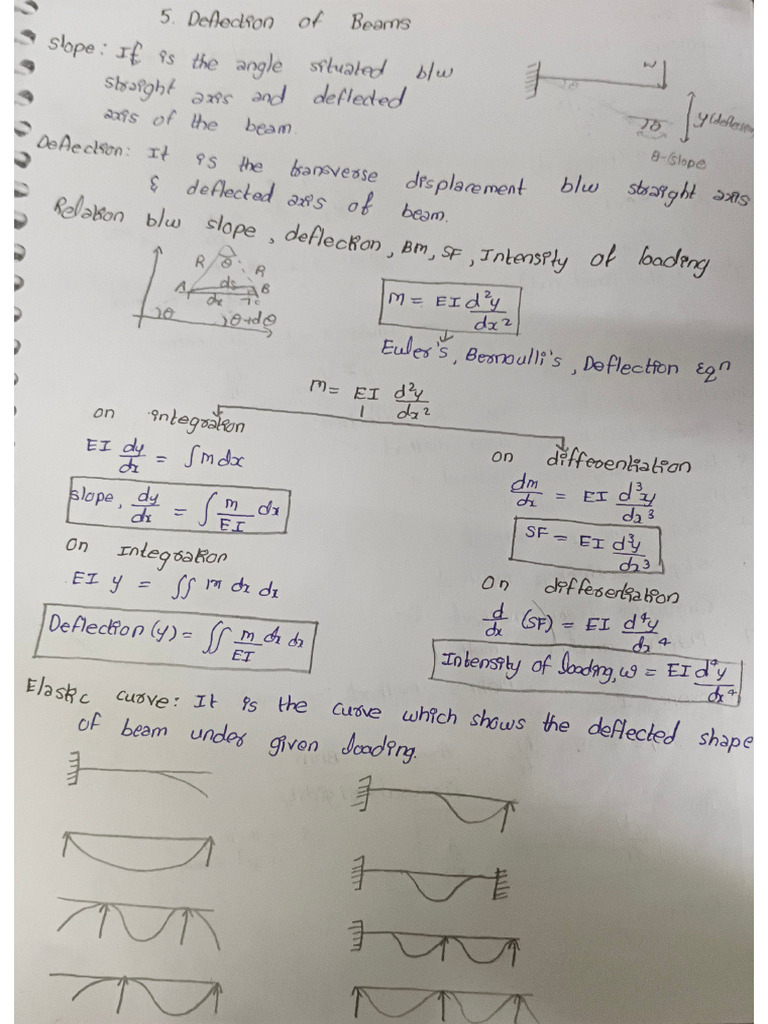 5. Deflection of Beams
Slope: It is the angle situated b/w
straight axis and deflected
axis of the beam.
W
θ
y(deflection
θ
θ-(slope
Deflection: It is the transverse displacement b/w straight axis
& deflected axis of beam.
Relation b/w slope, deflection, BM, SF, Intensity of loading
R θ R
A ds B
dx c
θ θ+dθ
M = EI d²y/dx²
Euler's, Bernoulli's, Deflection Eqn
M = EI d²y/dx²
on integration
EI dy/dx = ∫ M dx
Slope, dy/dx = ∫ M/EI dx
on Integration
EI y = ∫∫ M dx dx
Deflection (y) = ∫∫ M/EI dx dx
on differentiation
dm/dx = EI d³y/dx³
SF = EI d³y/dx³
on differentiation
d/dx (SF) = EI d⁴y/dx⁴
Intensity of loading, w = EI d⁴y/dx⁴
Elastic curve: It is the curve which shows the deflected shape
of beam under given loading.